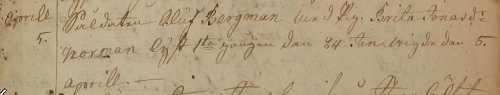 Aprill Soldaten Oluf Bergman und Pig. Brita Jonasdr
5. Norman lyst 1ta gången den 24. Jan. wigde den 5
Aprill. —